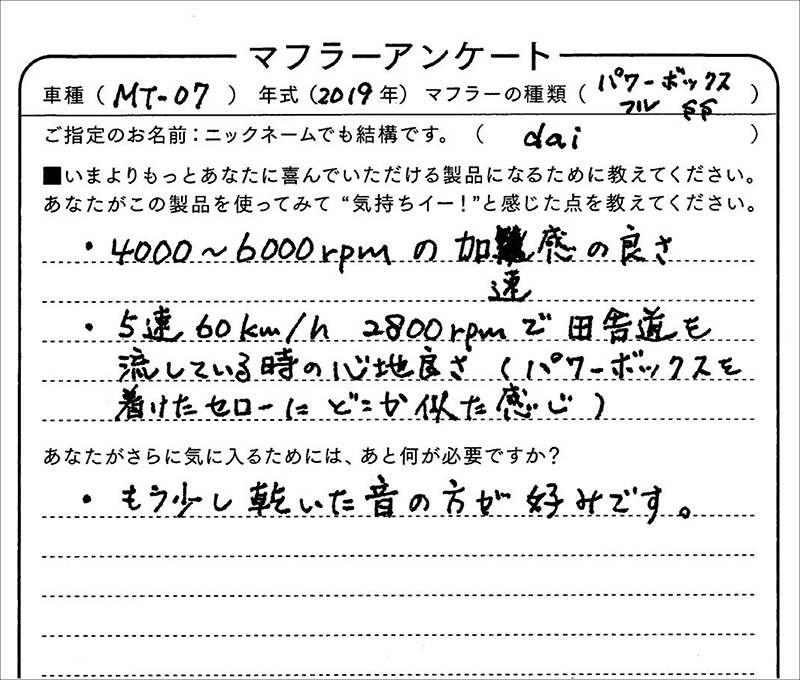 マフラーアンケート
車種（ MT-07 ） 年式（2019年） マフラーの種類（ パワーボックス フル SS ）
ご指定のお名前：ニックネームでも結構です。（ dai ）
■いまよりもっとあなたに喜んでいただける製品になるために教えてください。
あなたがこの製品を使ってみて “気持ちイー！”と感じた点を教えてください。
・4000～6000rpm の 加速感の良さ
・5速 60km/h 2800rpmで 田舎道を
流している時の心地良さ（パワーボックスを
着けたセローにどこか似た感じ）
あなたがさらに気に入るためには、あと何が必要ですか？
・もう少し乾いた音の方が好みです。